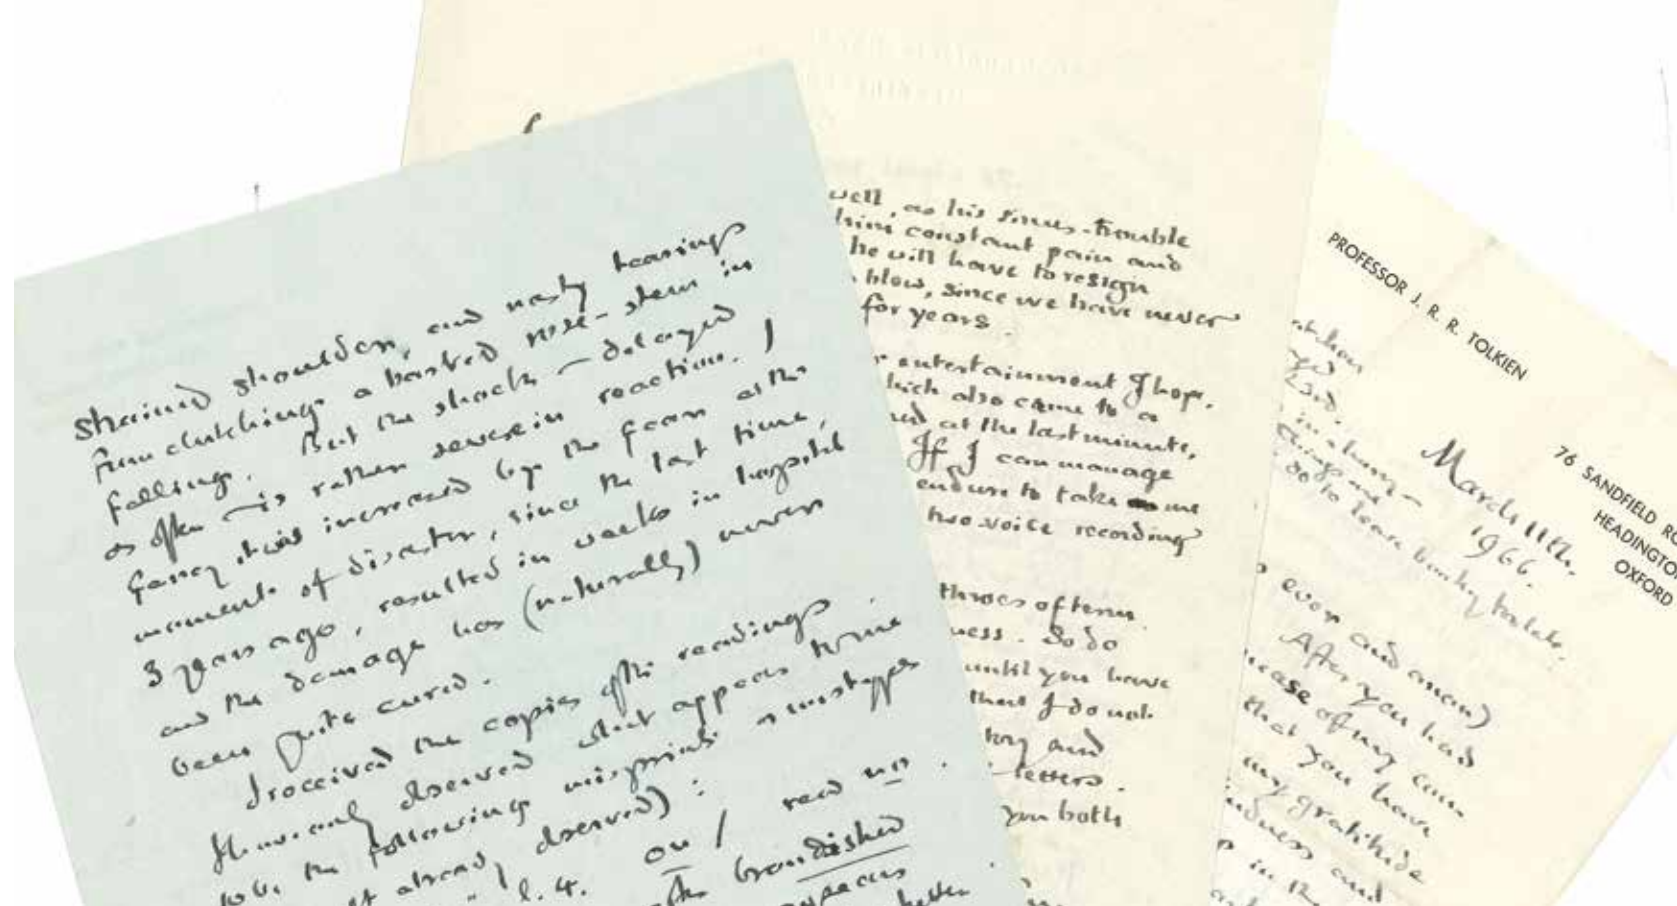 strained shoulder, and nasty tearings
from clutching a barbed rose-stem in
falling. But the shock – delayed
as often – is rather severe in reaction. I
fancy it was increased by the fear at the
moment of disaster, since the last time,
3 years ago, resulted in weeks in hospital
and the damage has (naturally) never
been quite cured.
I received the copies of the readings
I have only observed what appears to me
to be the following misprints or mistypes
not already observed):
l. 4. on / read no.
brandished
well, as his sinus-trouble
him constant pain and
he will have to resign
blow, since we have never
for years.
entertainment I hope.
which also came to a
at the last minute,
If I can manage
endure to take me
two-voice recording
throes of term
ness. So do
until you have
that I do not
tory and
letters.
you both
PROFESSOR J. R. R. TOLKIEN
76 SANDFIELD RO
HEADINGTO
OXFORD
March 11th.
1966.
in a hurry –
Things one
do to leave
ever and anon)
After you had
of my
that you have
my gratitude
indness and
in the